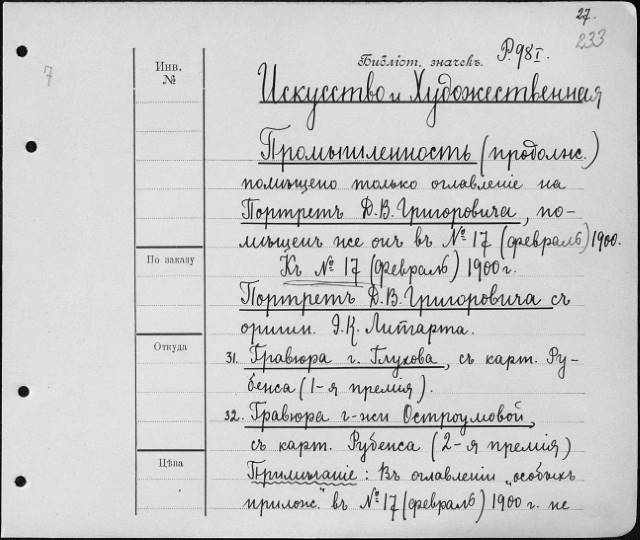 27.
233
7
Инв. №
Библіот. значекъ. P.98I.
Искусство и Художественная
Промышленность (продолж.)
помѣщено только оглавленіе на
Портретъ Д.В. Григоровича, по-
мѣщенъ же онъ въ № 17 (февраль) 1900.
Къ № 17 (февраль) 1900 г.
По заказу
Портретъ Д.В. Григоровича съ
оригин. Э.К. Липгарта.
Откуда
31. Гравюра г. Глухова, съ карт. Ру-
бенса (1-я премія).
32. Гравюра г-жи Остроумовой,
съ карт. Рубенса (2-я премія)
Цѣна
Примѣчаніе: Въ оглавленіи „особыхъ
прилож." въ № 17 (февраль) 1900 г. не